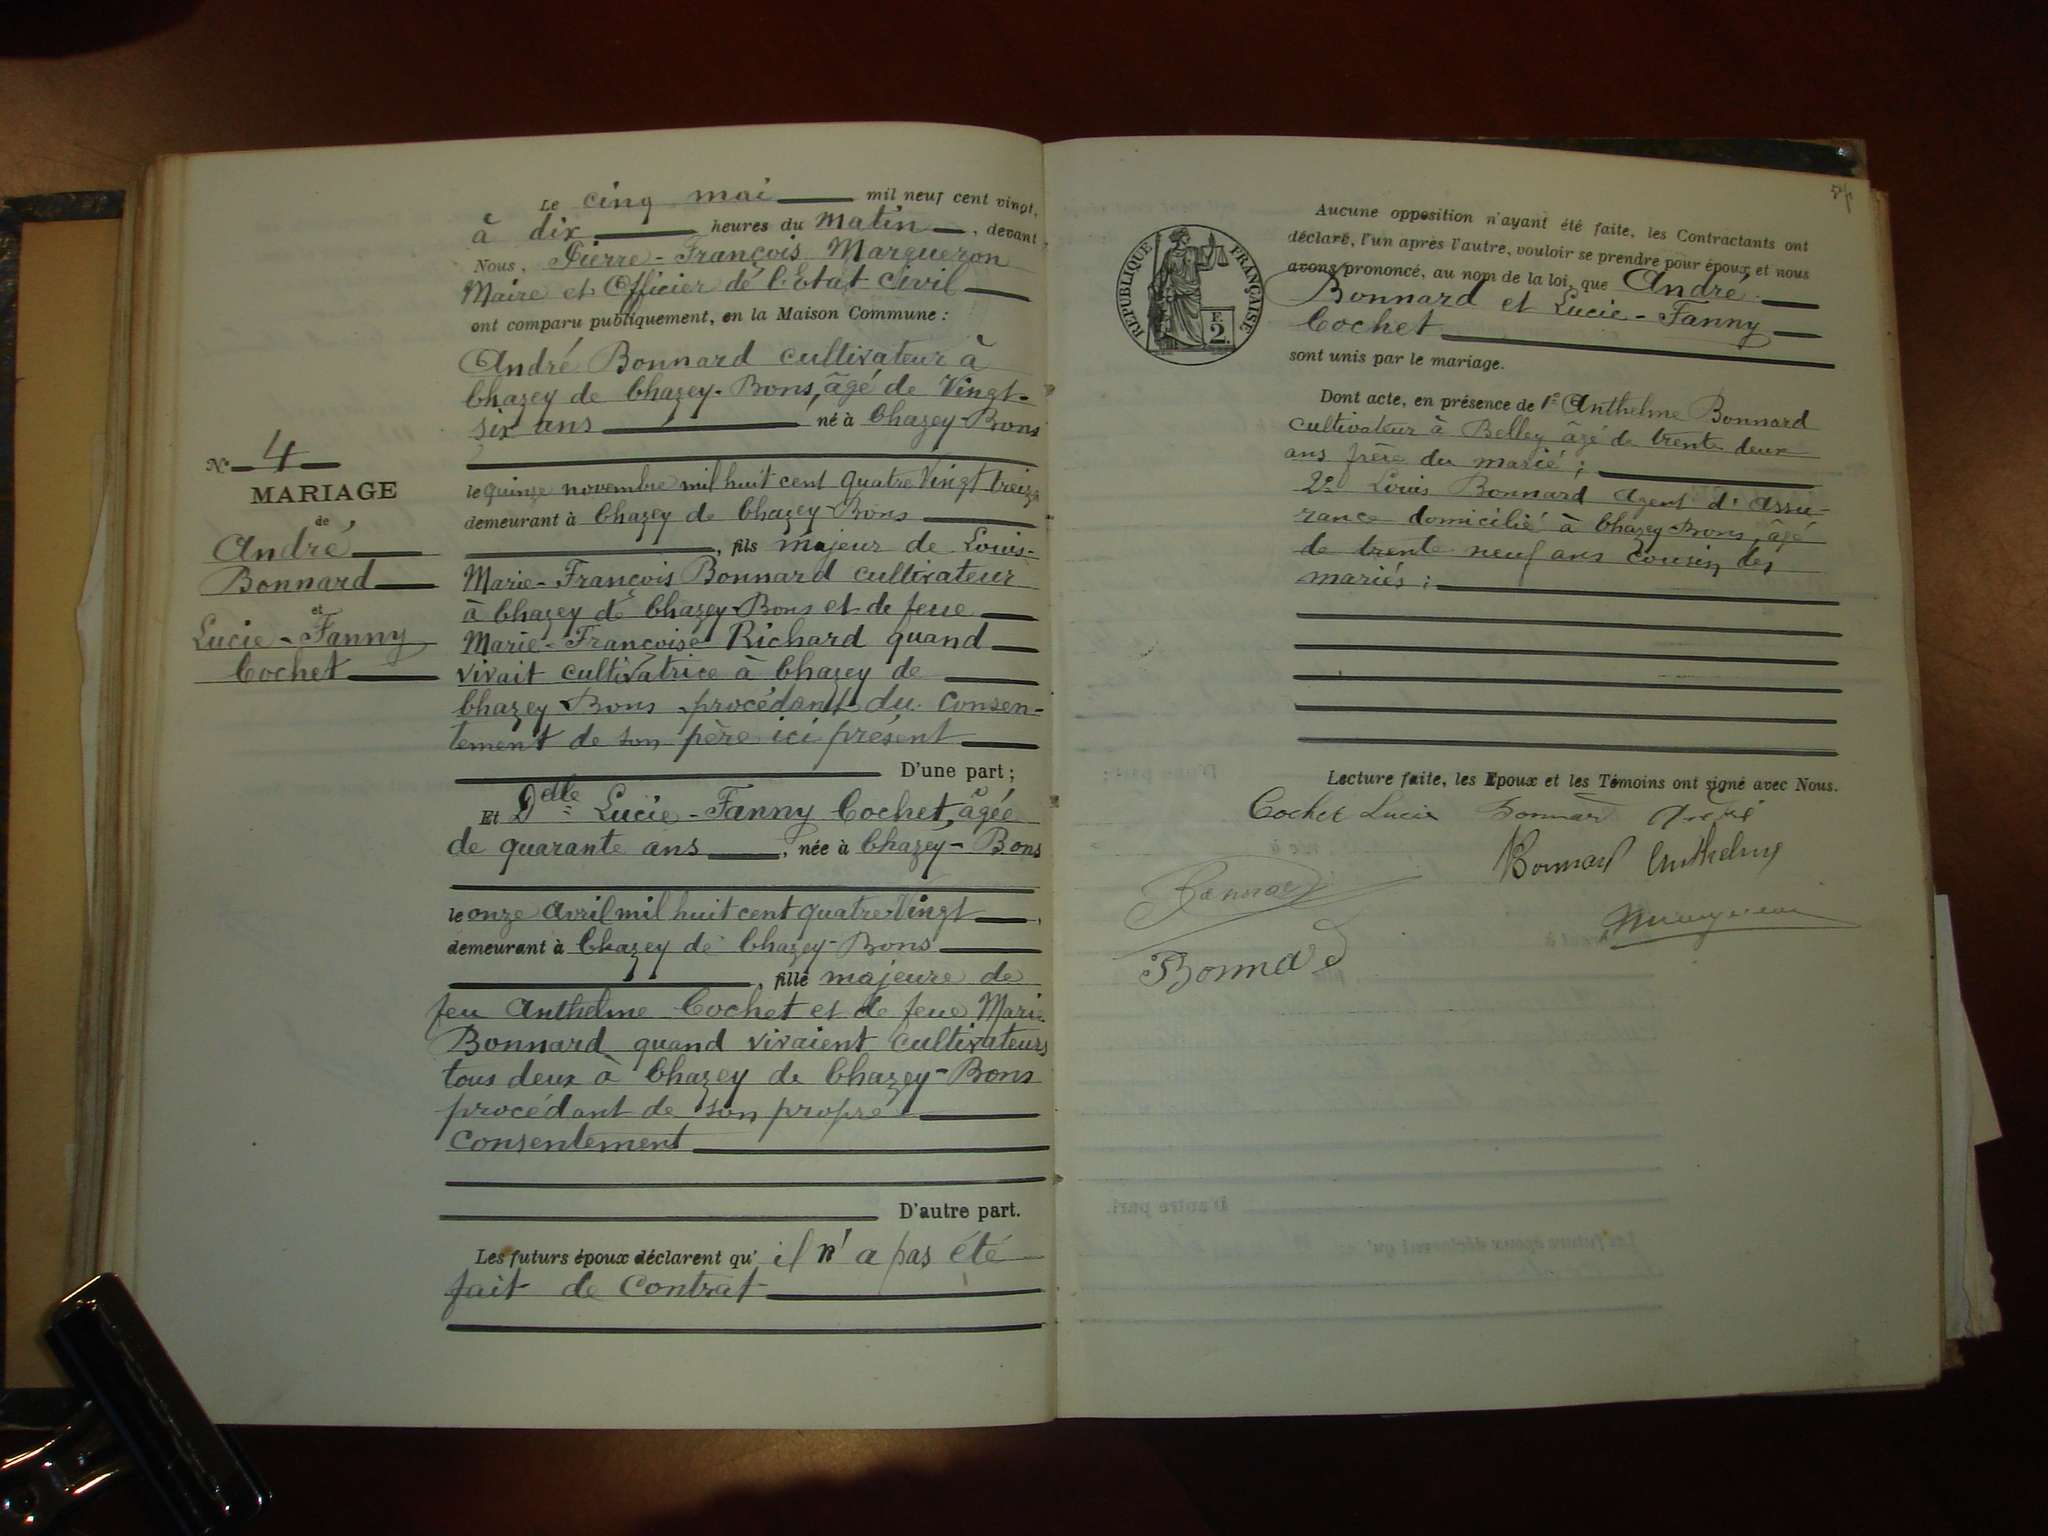 Le cinq mai mil neuf cent vingt,
à dix heures du Matin, devant
Nous, Pierre-François Margueron
Maire et Officier de l'Etat Civil
ont comparu publiquement, en la Maison Commune :
André Bonnard cultivateur à
Chazey de Chazey-Bons, âgé de Vingt-
six ans né à Chazey-Bons
le quinze novembre mil huit cent quatre Vingt treize
demeurant à Chazey de Chazey-Bons
, fils majeur de Louis-
Marie-François Bonnard cultivateur
à Chazey de Chazey-Bons et de feue
Marie-Françoise Richard quand
vivait cultivatrice à Chazey de
Chazey-Bons procédant du consen-
tement de son père ici présent
D'une part ;
Et Delle Lucie-Fanny Cochet, âgée
de quarante ans, née à Chazey-Bons
le onze Avril mil huit cent quatre Vingt,
demeurant à Chazey de Chazey-Bons
, fille majeure de
feu Anthelme Cochet et de feue Marie
Bonnard quand vivaient cultivateurs
tous deux à Chazey de Chazey-Bons
procédant de son propre
consentement
D'autre part.
Les futurs époux déclarent qu'il n'a pas été
fait de contrat
N° 4
MARIAGE
de
André
Bonnard
et
Lucie-Fanny
Cochet
RÉPUBLIQUE FRANÇAISE
F.
2.
Aucune opposition n'ayant été faite, les Contractants ont
déclaré, l'un après l'autre, vouloir se prendre pour époux et nous
avons prononcé, au nom de la loi, que André
Bonnard et Lucie-Fanny
Cochet
sont unis par le mariage.
Dont acte, en présence de 1° Anthelme Bonnard
cultivateur à Belley âgé de trente deux
ans frère du marié ;
2° Louis Bonnard Agent d'Assu-
rance domicilié à Chazey-Bons, âgé
de trente neuf ans cousin des
mariés :
Lecture faite, les Epoux et les Témoins ont signé avec Nous.
Cochet Lucie Bonnard André
Bonnard Anthelme
Bonnard
Margueron
Bonnard